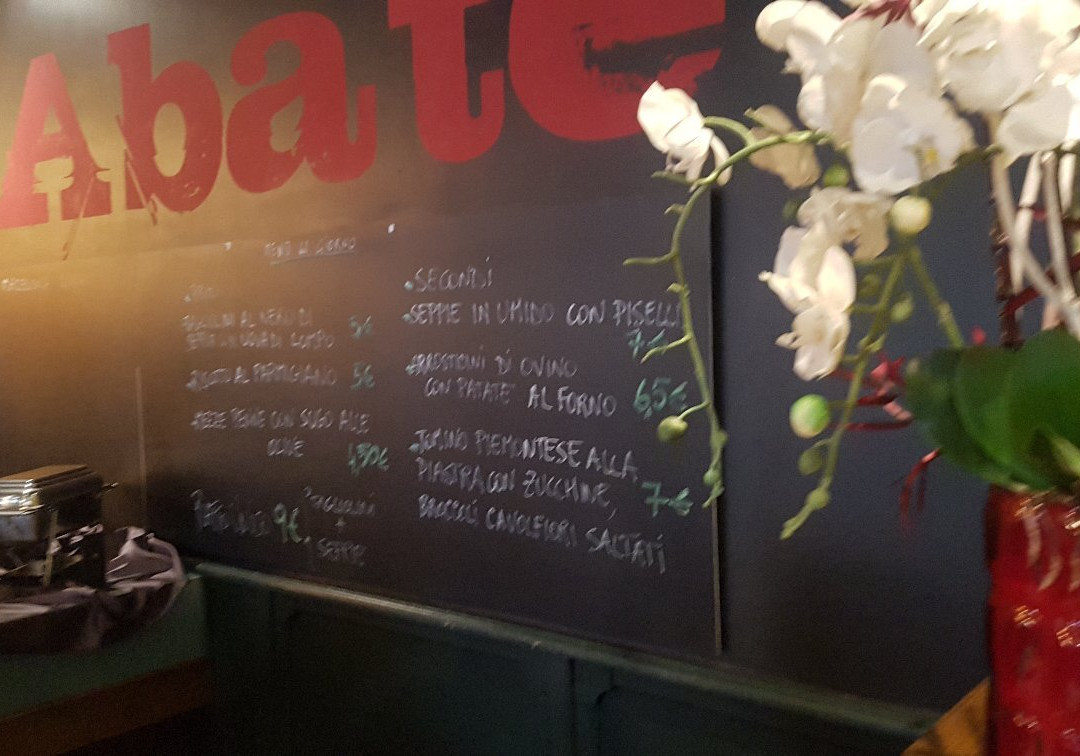 Abate
MENÙ DEL GIORNO
AL NERO DI
5€
RISOTTO AL PARMIGIANO 5€
PENNE CON SUGO ALLE
OLIVE
4,50€
PIATTO UNICO 9€
TAGLIOLINI
+
SEPPIE
•SECONDI
•SEPPIE IN UMIDO CON PISELLI
7€
•ARROSTICINI DI OVINO
CON PATATE AL FORNO 6,5€
•TOMINO PIEMONTESE ALLA
PIASTRA CON ZUCCHINE, 7€
BROCCOLI CAVOLFIORI SALTATI